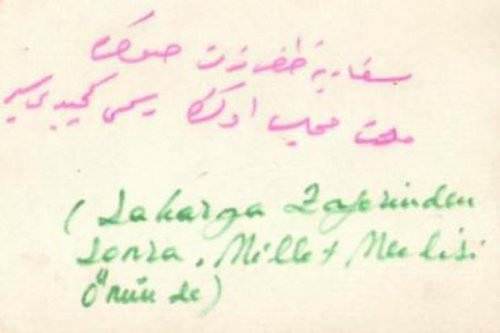 سقاريه ظفرندن صوكره
ملت مجلسی اوكنده رسمی كچید
( Sakarya Zaferinden
Sonra, Millet Meclisi
Önünde)